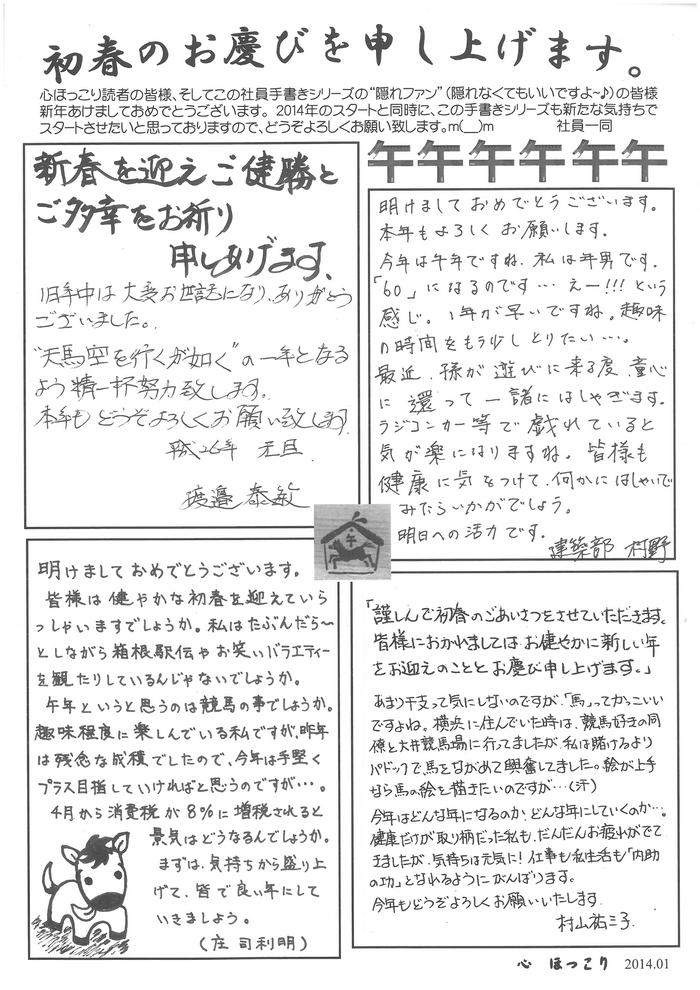 初春のお慶びを申し上げます。
心ほっこり読者の皆様、そしてこの社員手書きシリーズの“隠れファン”（隠れなくてもいいですよ～♪）の皆様
新年あけましておめでとうございます。2014年のスタートと同時に、この手書きシリーズも新たな気持ちで
スタートさせたいと思っておりますので、どうぞよろしくお願い致します。m(__)m 社員一同
新春を迎えご健勝と
ご多幸をお祈り
申しあげます、
旧年中は大変お世話になり、ありがとう
ございました。
“天馬空を行くが如く”の一年となる
よう精一杯努力致します。
本年もどうぞよろしくお願い致します
平成26年 元旦
渡邉 泰敏
午午午午午午
明けましておめでとうございます。
本年もよろしくお願いします。
今年は午年ですね。私は年男です。
「60」になるのです…えー!!!という
感じ。1年が早いですね。趣味
の時間をもう少しとりたい…。
最近、孫が遊びに来る度、童心
に還って一諸にはしゃぎます。
ラジコンカー等で戯れていると
気が楽になりますね。皆様も
健康に気をつけて、何かにはしゃいで
みたらいかがでしょう。
明日への活力です。
建築部 村野
午
明けましておめでとうございます。
皆様は健やかな初春を迎えていら
っしゃいますでしょうか。私はたぶんだら～
としながら箱根駅伝やお笑いバラエティー
を観たりしているんじゃないでしょうか。
午年というと思うのは競馬の事でしょうか。
趣味程度に楽しんでいる私ですが、昨年
は残念な成積でしたので、今年は手堅く
プラス目指していければと思うのですが…。
4月から消費税が8%に増税されると
景気はどうなるんでしょうか。
まずは、気持ちから盛り上
げて、皆で良い年にして
いきましょう。
（庄司利明）
「謹しんで初春のごあいさつをさせていただきます。
皆様におかれましてはお健やかに新しい年
をお迎えのこととお慶び申し上げます。」
あまり干支って気にしないのですが、「馬」ってかっこいい
ですよね。横浜に住んでいた時は、競馬好きの同
僚と大井競馬場に行ってましたが、私は賭けるより
パドックで馬をながめて興奮してました。絵が上手
なら馬の絵を描きたいのですが…（汗）
今年はどんな年になるのか、どんな年にしていくのか…。
健康だけが取り柄だった私も、だんだんお疲れがでて
きましたが、気持ちは元気に！仕事も私生活も「内助
の功」となれるようにがんばります。
今年もどうぞよろしくお願いいたします。
村山祐三子
心 ほっこり 2014.01